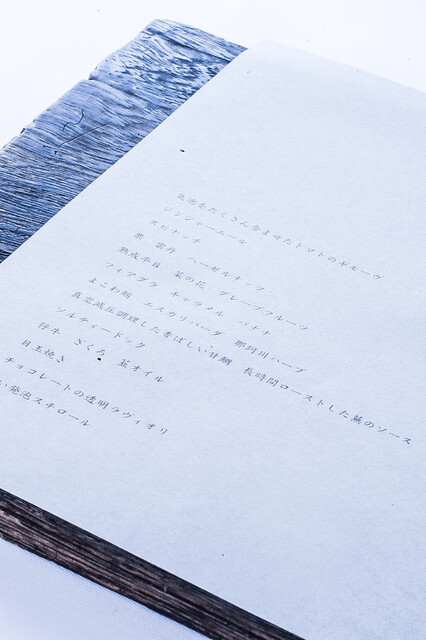 気泡をたくさん含ませたトマトのギモーヴ
ジンジャーエール
スピナッチ
栗　雲丹　ヘーゼルナッツ
熟成平目　菜の花　グレープフルーツ
フォアグラ　キャラメル　バナナ
よこわ鮪　エスカリバーダ　那珂川ハーブ
真空減圧調理した香ばしい甘鯛　長時間ローストした蕪のソース
ソルティードッグ
仔牛　ざくろ　韮オイル
目玉焼き
チョコレートの透明ラヴィオリ
い発泡スチロール